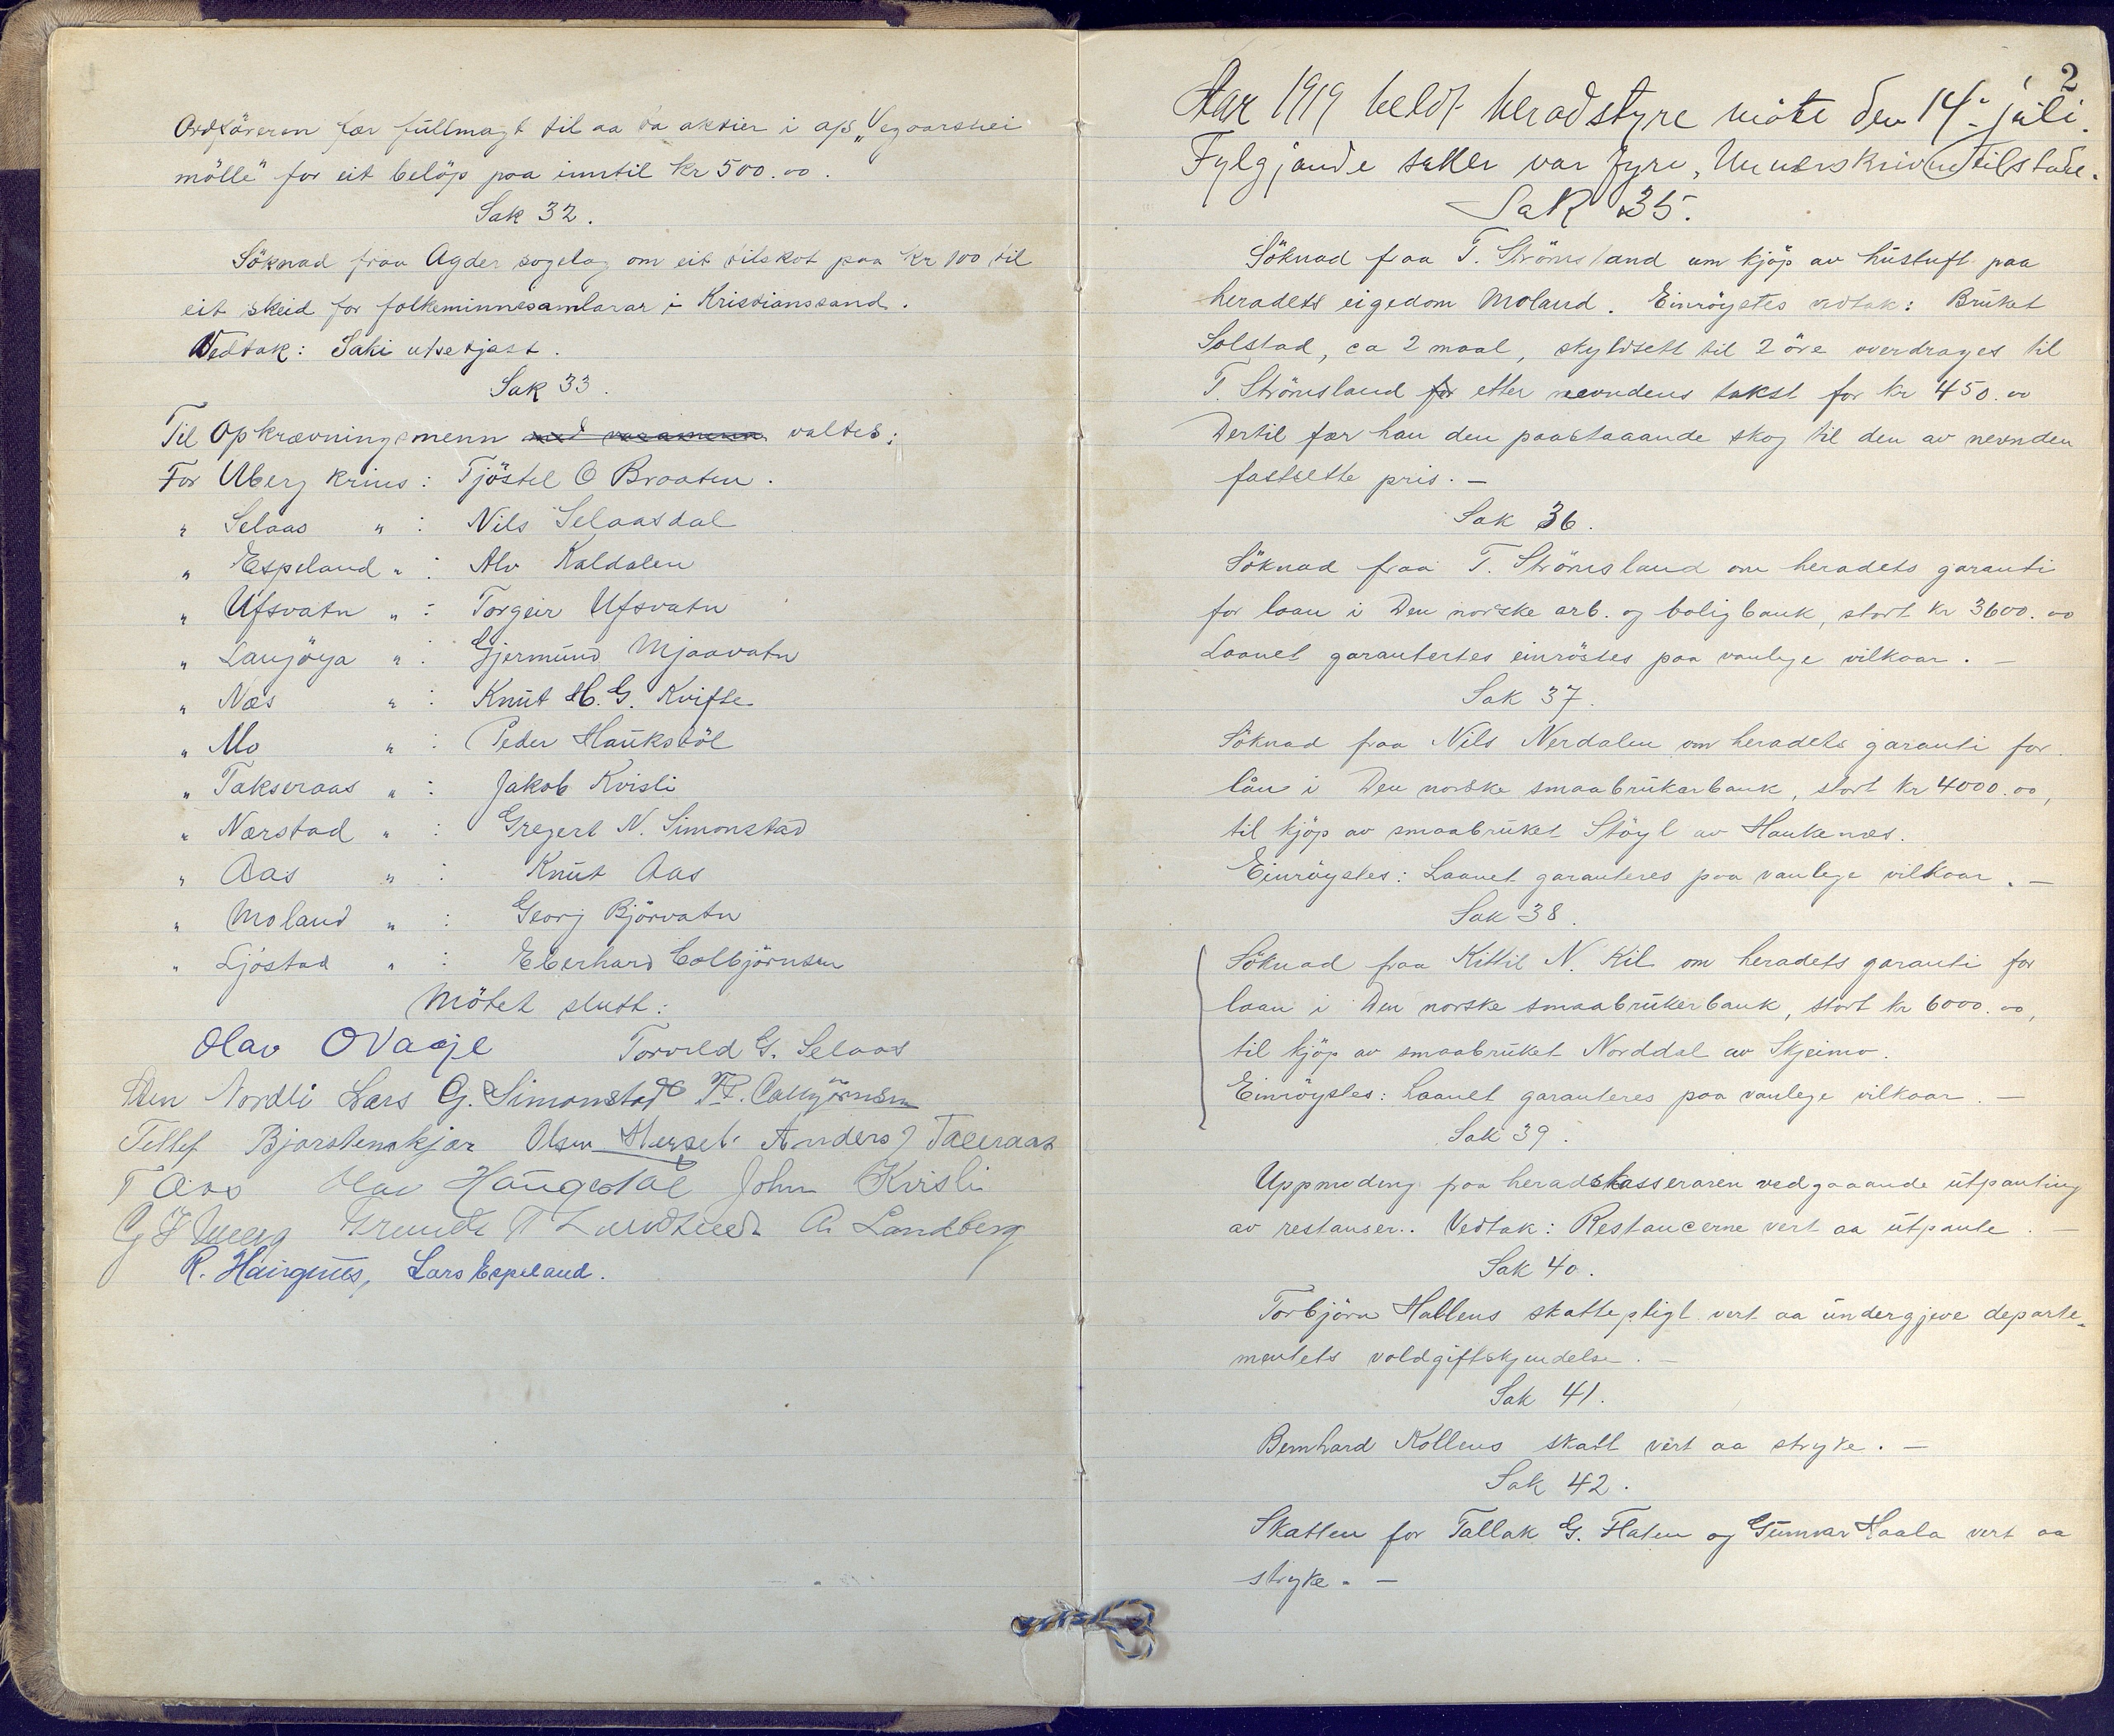 Ordföreren fær fullmagt til aa ta aktier i a/s „Vegaarshei
mölle" for eit belöp paa inntil kr 500.00.
Sak 32.
Söknad fraa Agder sogelag om eit tilskot paa kr 100 til
eit skeid for folkeminnesamlarar i Kristianssand.
Vedtak: Saki utsetjast.
Sak 33.
Til Opkrævningsmenn med varamenn valtes:
For Uberg krins: Tjöstel O Braaten.
" Selaas " : Nils Selaasdal
" Espeland " : Alv Kaldalen
" Ufsvatn " : Torgeir Ufsvatn
" Lauvöya " : Gjermund Mjaavatn
" Næs " : Knut H. G. Kvifte
" Mo " : Peder Hauksböl
" Takseraas " : Jakob Kvisli
" Nærstad " : Gregert N. Simonstad
" Aas " : Knut Aas
" Moland " : Georg Björvatn
" Ljöstad " : Eberhard Colbjörnsen
Mötet slutt:
Olav O Vaaje Torvild G. Selaas
Sten Nordli Lars G. Simonstad
Tellef Bjorstemskjær Olsen Anders J Taxeraas
T Aas Olav John Kvisli
A. Landberg
Lars Espeland.
2
Aar 1919 heldt heradstyre möte den 14. juli.
Fylgjande saker var fyre, Underskrivne tilstade.
Sak 35.
Söknad fraa T. Strömsland um kjöp av hustuft paa
heradets eigedom Moland. Einröystes vedtak: Bruket
Solstad, ca 2 maal, skyldsett til 2 öre overdrages til
T. Strömsland for etter nevndens takst for kr 450.00
Dertil fær han den paastaaande skog til den av nevnden
fastsette pris. —
Sak 36.
Söknad fraa T. Strömsland om heradets garanti
for laan i Den norske arb. og boligbank, stort kr 3600.00
Laanet garantertes einröstes paa vanlege vilkaar. —
Sak 37.
Söknad fraa Nils Nerdalen om heradets garanti for
lån i Den norske smaabrukarbank, stort kr 4000.00,
til kjöp av smaabruket Stöyl av Haukenæs.
Einröystes: Laanet garanteres paa vanlege vilkaar. —
Sak 38.
Söknad fraa Kittil N. Kil om heradets garanti for
laan i Den norske smaabrukerbank, stort kr 6000.00,
til kjöp av smaabruket Norddal av Skjeimo.
Einröystes: Laanet garanteres paa vanlege vilkaar. —
Sak 39.
Uppmoding fraa heradskasseraren vedgaaande utpanting
av restanser. Vedtak: Restancerne vert aa utpante. —
Sak 40.
Torbjörn Hallens skattepligt vert aa undergjeve departe-
mentets voldgiftskjendelse. —
Sak 41.
Bernhard Kollens skatt vert aa stryke. —
Sak 42.
Skatten for Tallak G. Flaten og Gunvar Haala vert aa
stryke. —